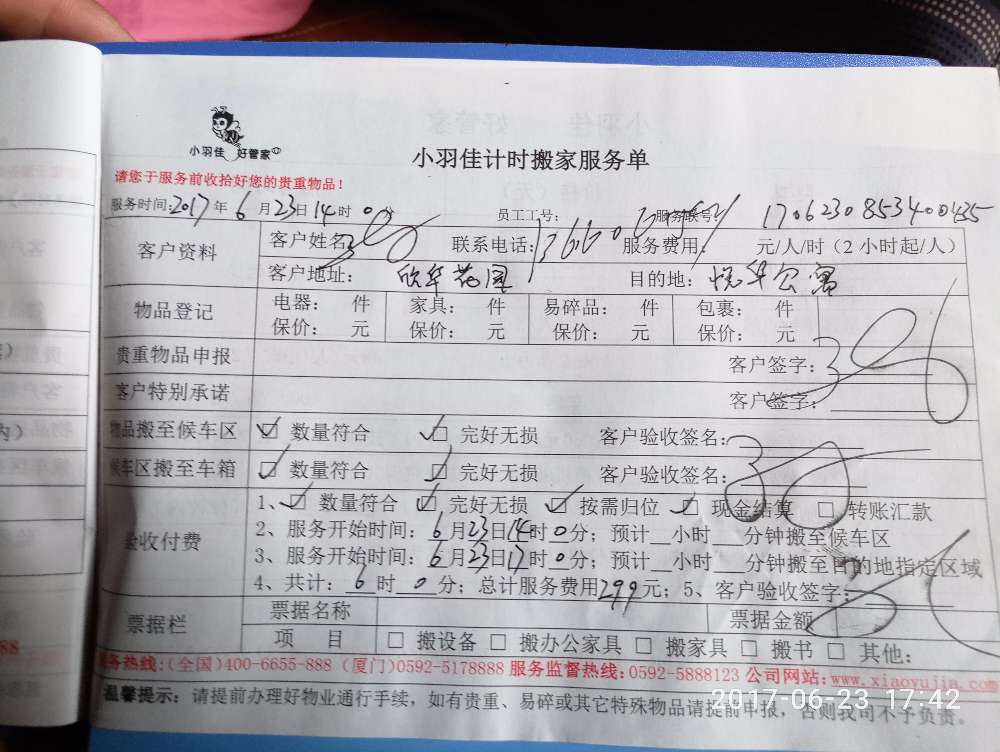 小羽佳 好管家
小羽佳计时搬家服务单
请您于服务前收拾好您的贵重物品！
服务时间：2017年6月23日14时0分 员工工号： 服务联号：1706230853400435
客户资料 客户姓名： 联系电话： 服务费用： 元/人/时（2小时起/人）
客户地址：欣华花园 目的地：悦华公寓
物品登记 电器： 件 家具： 件 易碎品： 件 包裹： 件
保价： 元 保价： 元 保价： 元 保价： 元
贵重物品申报 客户签字：
客户特别承诺 客户签字：
物品搬至候车区 ☑ 数量符合 ☑ 完好无损 客户验收签名：
候车区搬至车箱 ☑ 数量符合 ☑ 完好无损 客户验收签名：
验收付费 1、☑ 数量符合 ☑ 完好无损 ☑ 按需归位 ☑ 现金结算 □ 转账汇款
2、服务开始时间：6月23日14时0分；预计__小时___分钟搬至候车区
3、服务开始时间：6月23日17时0分；预计__小时___分钟搬至目的地指定区域
4、共计：6时0分；总计服务费用299元；5、客户验收签字：
票据栏 票据名称 票据金额
项 目 □ 搬设备 □ 搬办公家具 □ 搬家具 □ 搬书 □ 其他：
服务热线：(全国)400-6655-888 (厦门)0592-5178888 服务监督热线：0592-5888123 公司网站：www.xiaoyujia.com
温馨提示：请提前办理好物业通行手续，如有贵重、易碎或其它特殊物品请提前申报，否则我司不予负责。
2017-06-23 17:42